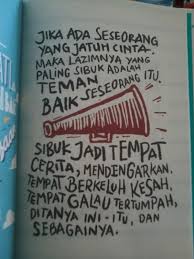 JIKA ADA SESEORANG
YANG JATUH CINTA.
MAKA LAZIMNYA YANG
PALING SIBUK ADALAH
TEMAN
BAIK SESEORANG ITU.
SIBUK JADI TEMPAT
CERITA, MENDENGARKAN.
TEMPAT BERKELUH KESAH,
TEMPAT GALAU TERTUMPAH,
DITANYA INI-ITU, DAN
SEBAGAINYA.